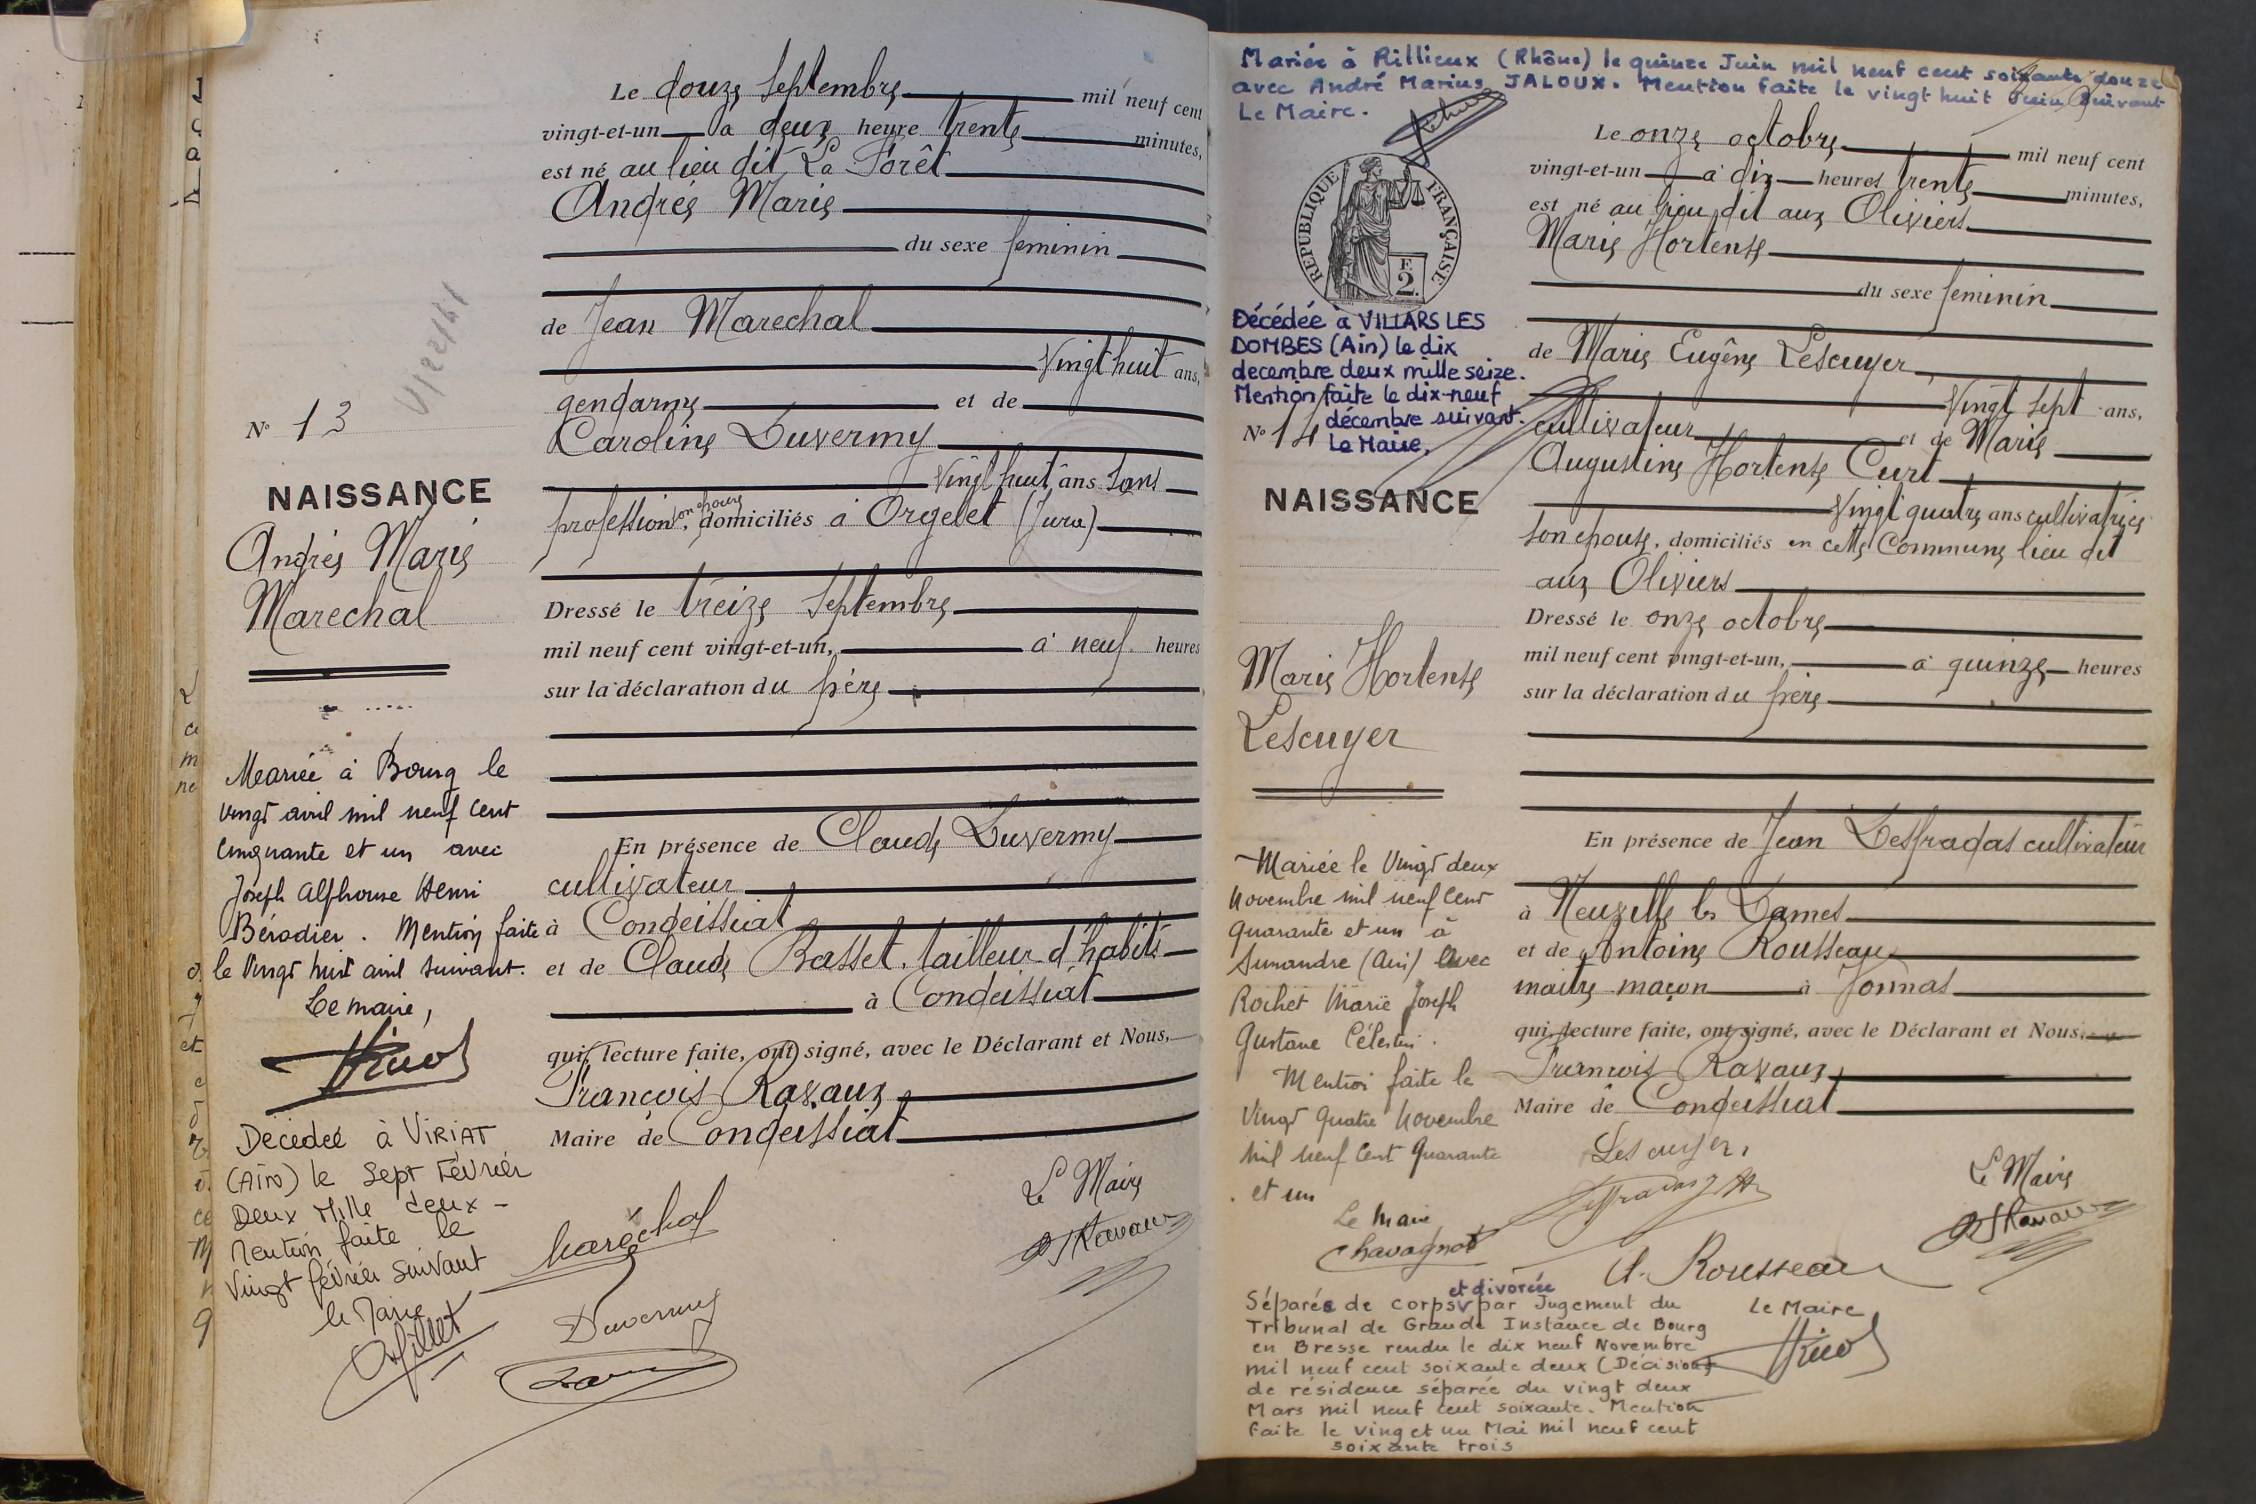 Le douze Septembre mil neuf cent
vingt-et-un à deux heure trente minutes,
est né au lieu dit La Forêt
Andrée Marie
du sexe feminin
de Jean Marechal
Vingt huit ans,
gendarme et de
Caroline Duvermy
Vingt huit ans Sans
profession son épouse, domiciliés à Orgelet (Jura)
Dressé le treize Septembre
mil neuf cent vingt-et-un, à neuf heures
sur la déclaration du père
En présence de Claude Duvermy
cultivateur
à Condeissiat
et de Claude Basset, tailleur d'habits
à Condeissiat
qui, lecture faite, ont signé, avec le Déclarant et Nous,
François Ravaux
Maire de Condeissiat
Le Maire
Maréchal
Duvermy
N° 13
NAISSANCE
Andrée Marie
Marechal
Mariée à Bourg le
vingt avril mil neuf cent
cinquante et un avec
Joseph Alphonse Henri
Bérodier. Mention faite
le vingt huit avril suivant.
Le maire,
Décédée à VIRIAT
(AIN) le Sept Février
Deux Mille deux -
Mention faite le
Vingt février suivant
le Maire
Mariée à Rillieux (Rhône) le quinze Juin mil neuf cent soixante douze
avec André Marius JALOUX. Mention faite le vingt huit Juin suivant
Le Maire.
REPUBLIQUE FRANÇAISE
F.
2.
Décédée à VILLARS LES
DOMBES (Ain) le dix
decembre deux mille seize.
Mention faite le dix-neuf
décembre suivant.
Le Maire,
N° 14
NAISSANCE
Marie Hortense
Lescuyer
Mariée le Vingt deux
Novembre mil neuf cent
quarante et un à
Sumandre (Ain) avec
Rochet Marie Joseph
Gustave Célestin.
Mention faite le
Vingt quatre Novembre
mil neuf cent quarante
et un
Le Maire
Chavagnot
Le onze octobre mil neuf cent
vingt-et-un à dix heures trente minutes,
est né au lieu dit aux Oliviers
Marie Hortense
du sexe feminin
de Marie Eugène Lescuyer,
Vingt sept ans,
cultivateur et de Marie
Augustine Hortense Curt
Vingt quatre ans cultivatrice
son épouse, domiciliés en cette Commune, lieu dit
aux Oliviers
Dressé le onze octobre
mil neuf cent vingt-et-un, à quinze heures
sur la déclaration du père
En présence de Jean Desfradas cultivateur
à Neuville les Dames
et de Antoine Rousseau
maître maçon à Vonnas
qui, lecture faite, ont signé, avec le Déclarant et Nous,
François Ravaux
Maire de Condeissiat
Lescuyer,
Le Maire
A. Rousseau
et divorcée
Séparée de corps v par Jugement du
Tribunal de Grande Instance de Bourg
en Bresse rendu le dix neuf Novembre
mil neuf cent soixante deux (Décision
de résidence séparée du vingt deux
Mars mil neuf cent soixante. Mention
faite le vingt et un Mai mil neuf cent
soixante trois
Le Maire